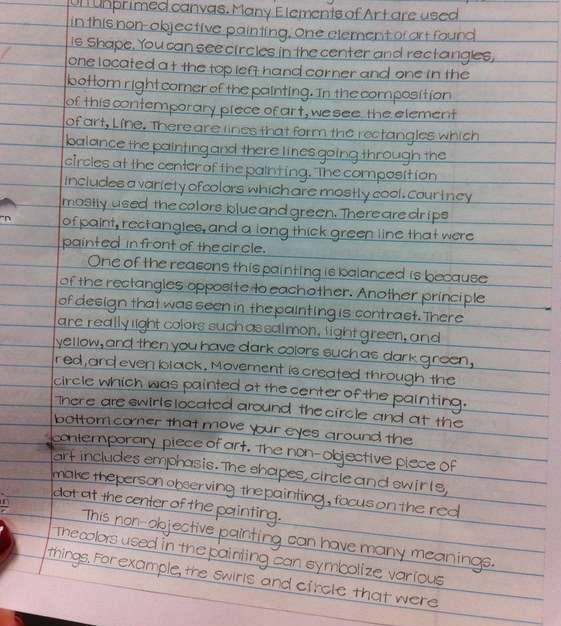 on unprimed canvas. Many Elements of Art are used
in this non-objective painting. One element of art found
is Shape. You can see circles in the center and rectangles,
one located at the top left hand corner and one in the
bottom right corner of the painting. In the composition
of this contemporary piece of art, we see the element
of art, Line. There are lines that form the rectangles which
balance the painting and there lines going through the
circles at the center of the painting. The composition
includes a variety of colors which are mostly cool. Courtney
mostly used the colors blue and green. There are drips
of paint, rectangles, and a long thick green line that were
painted in front of the circle.
One of the reasons this painting is balanced is because
of the rectangles opposite to each other. Another principle
of design that was seen in the painting is contrast. There
are really light colors such as salmon, light green, and
yellow, and then you have dark colors such as dark green,
red, and even black. Movement is created through the
circle which was painted at the center of the painting.
There are swirls located around the circle and at the
bottom corner that move your eyes around the
contemporary piece of art. The non-objective piece of
art includes emphasis. The shapes, circle and swirls,
make the person observing the painting, focus on the red
dot at the center of the painting.
This non-objective painting can have many meanings.
The colors used in the painting can symbolize various
things. For example, the swirls and circle that were